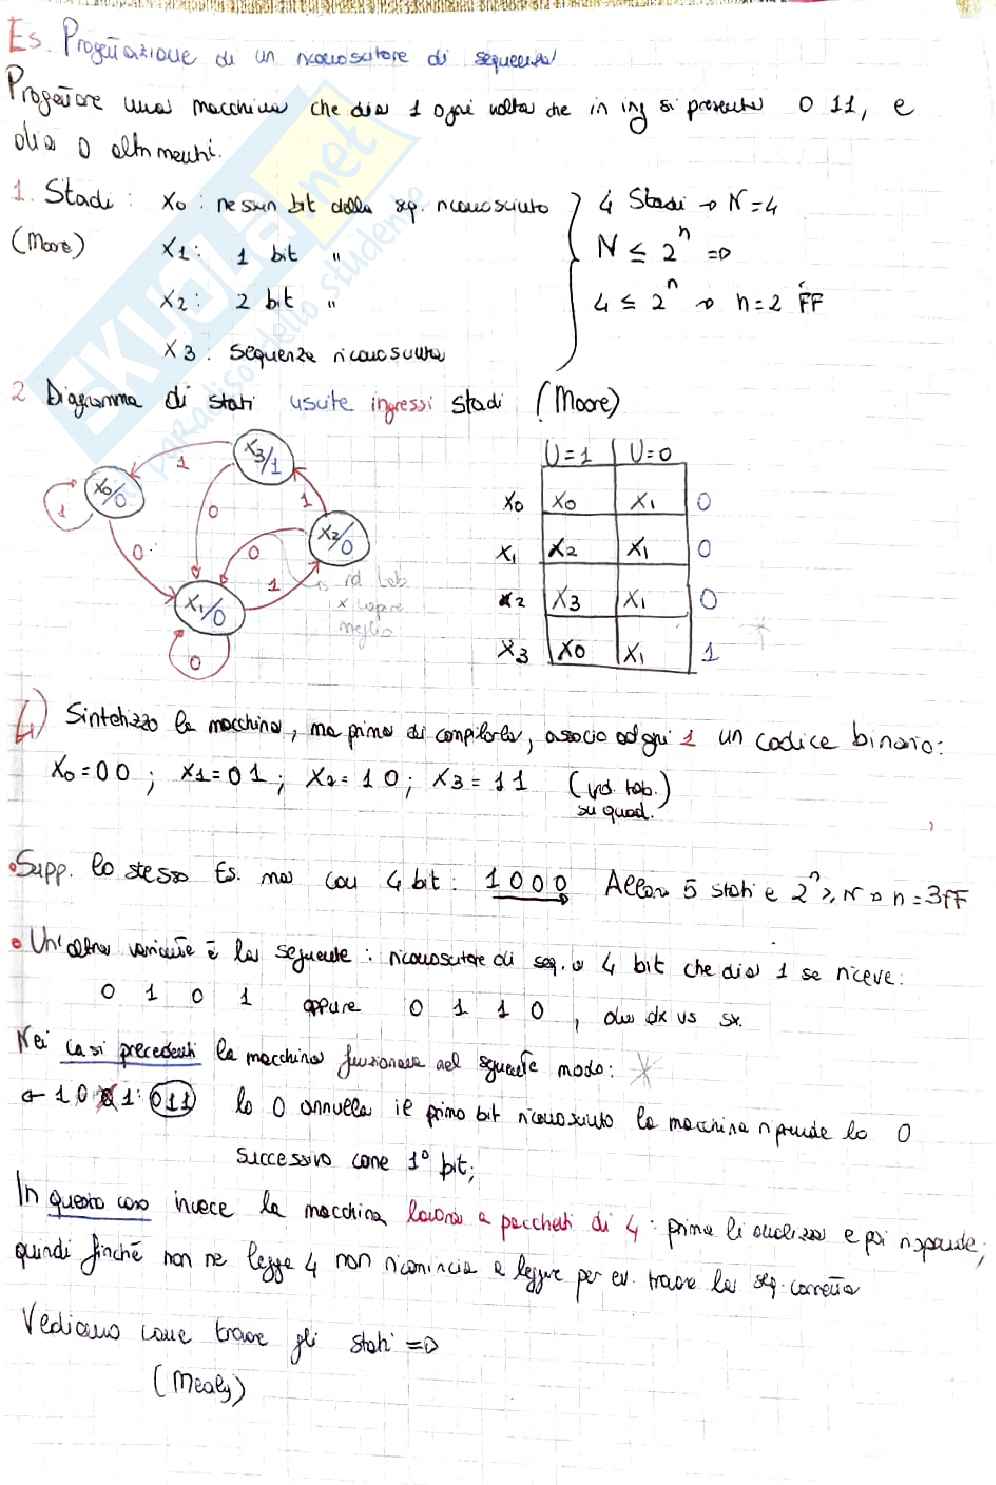 Es. Progettazione di un riconoscitore di sequenza
Progettare una macchina che dia 1 ogni volta che in ing si presenta 0 11, e
dia 0 altrimenti.
1. Stadi : X0 : nessun bit della sq. riconosciuto
(Moore) X1 : 1 bit "
X2 : 2 bit "
X3 : sequenza riconosciuta
4 Stadi → N=4
N ≤ 2^n ⇒
4 ≤ 2^n → n=2 FF
2 Diagramma di stati uscite ingressi stadi (Moore)
X3/1
X0/0
X2/0
X1/0
1
1
0
0
0
1
1
0
vd tab.
x capire
meglio
U=1 U=0
X0 X0 X1 0
X1 X2 X1 0
X2 X3 X1 0
X3 X0 X1 1
4) Sintetizzo la macchina, ma prima di compilarla, associo ad ogni 1 un codice binario:
X0=00 ; X1=01 ; X2=10 ; X3=11 (vd. tab.)
su quad.
•Supp. lo stesso Es. ma con 4 bit : 1000 Allora 5 stati e 2^n ≥ N → n=3FF
• Un'altra variante è la seguente : riconoscitore di seq. a 4 bit che dia 1 se riceve:
0 1 0 1 oppure 0 1 1 0 , da dx vs sx.
Nei casi precedenti la macchina funzionava nel seguente modo:
← 10 1: 011 lo 0 annulla il primo bit riconosciuto la macchina riprende lo 0
successivo come 1° bit;
In questo caso invece la macchina lavora a pacchetti di 4 : prima li analizza e poi risponde;
quindi finché non ne legge 4 non ricomincia a leggere per ev. trovare la seq. corretta
Vediamo come trovare gli stati ⇒
(Mealy)